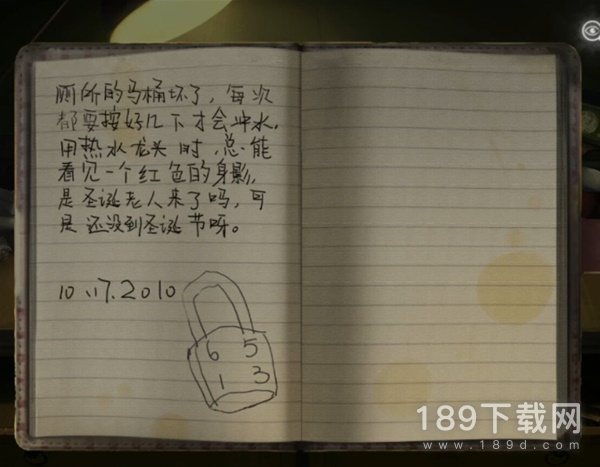 厕所的马桶坏了，每次
都要按好几下才会冲水。
用热水龙头时，总能
看见一个红色的身影，
是圣诞老人来了吗，可
是还没到圣诞节呀。
10.17.2010
6 5
1 3
189下载网
www.189d.com